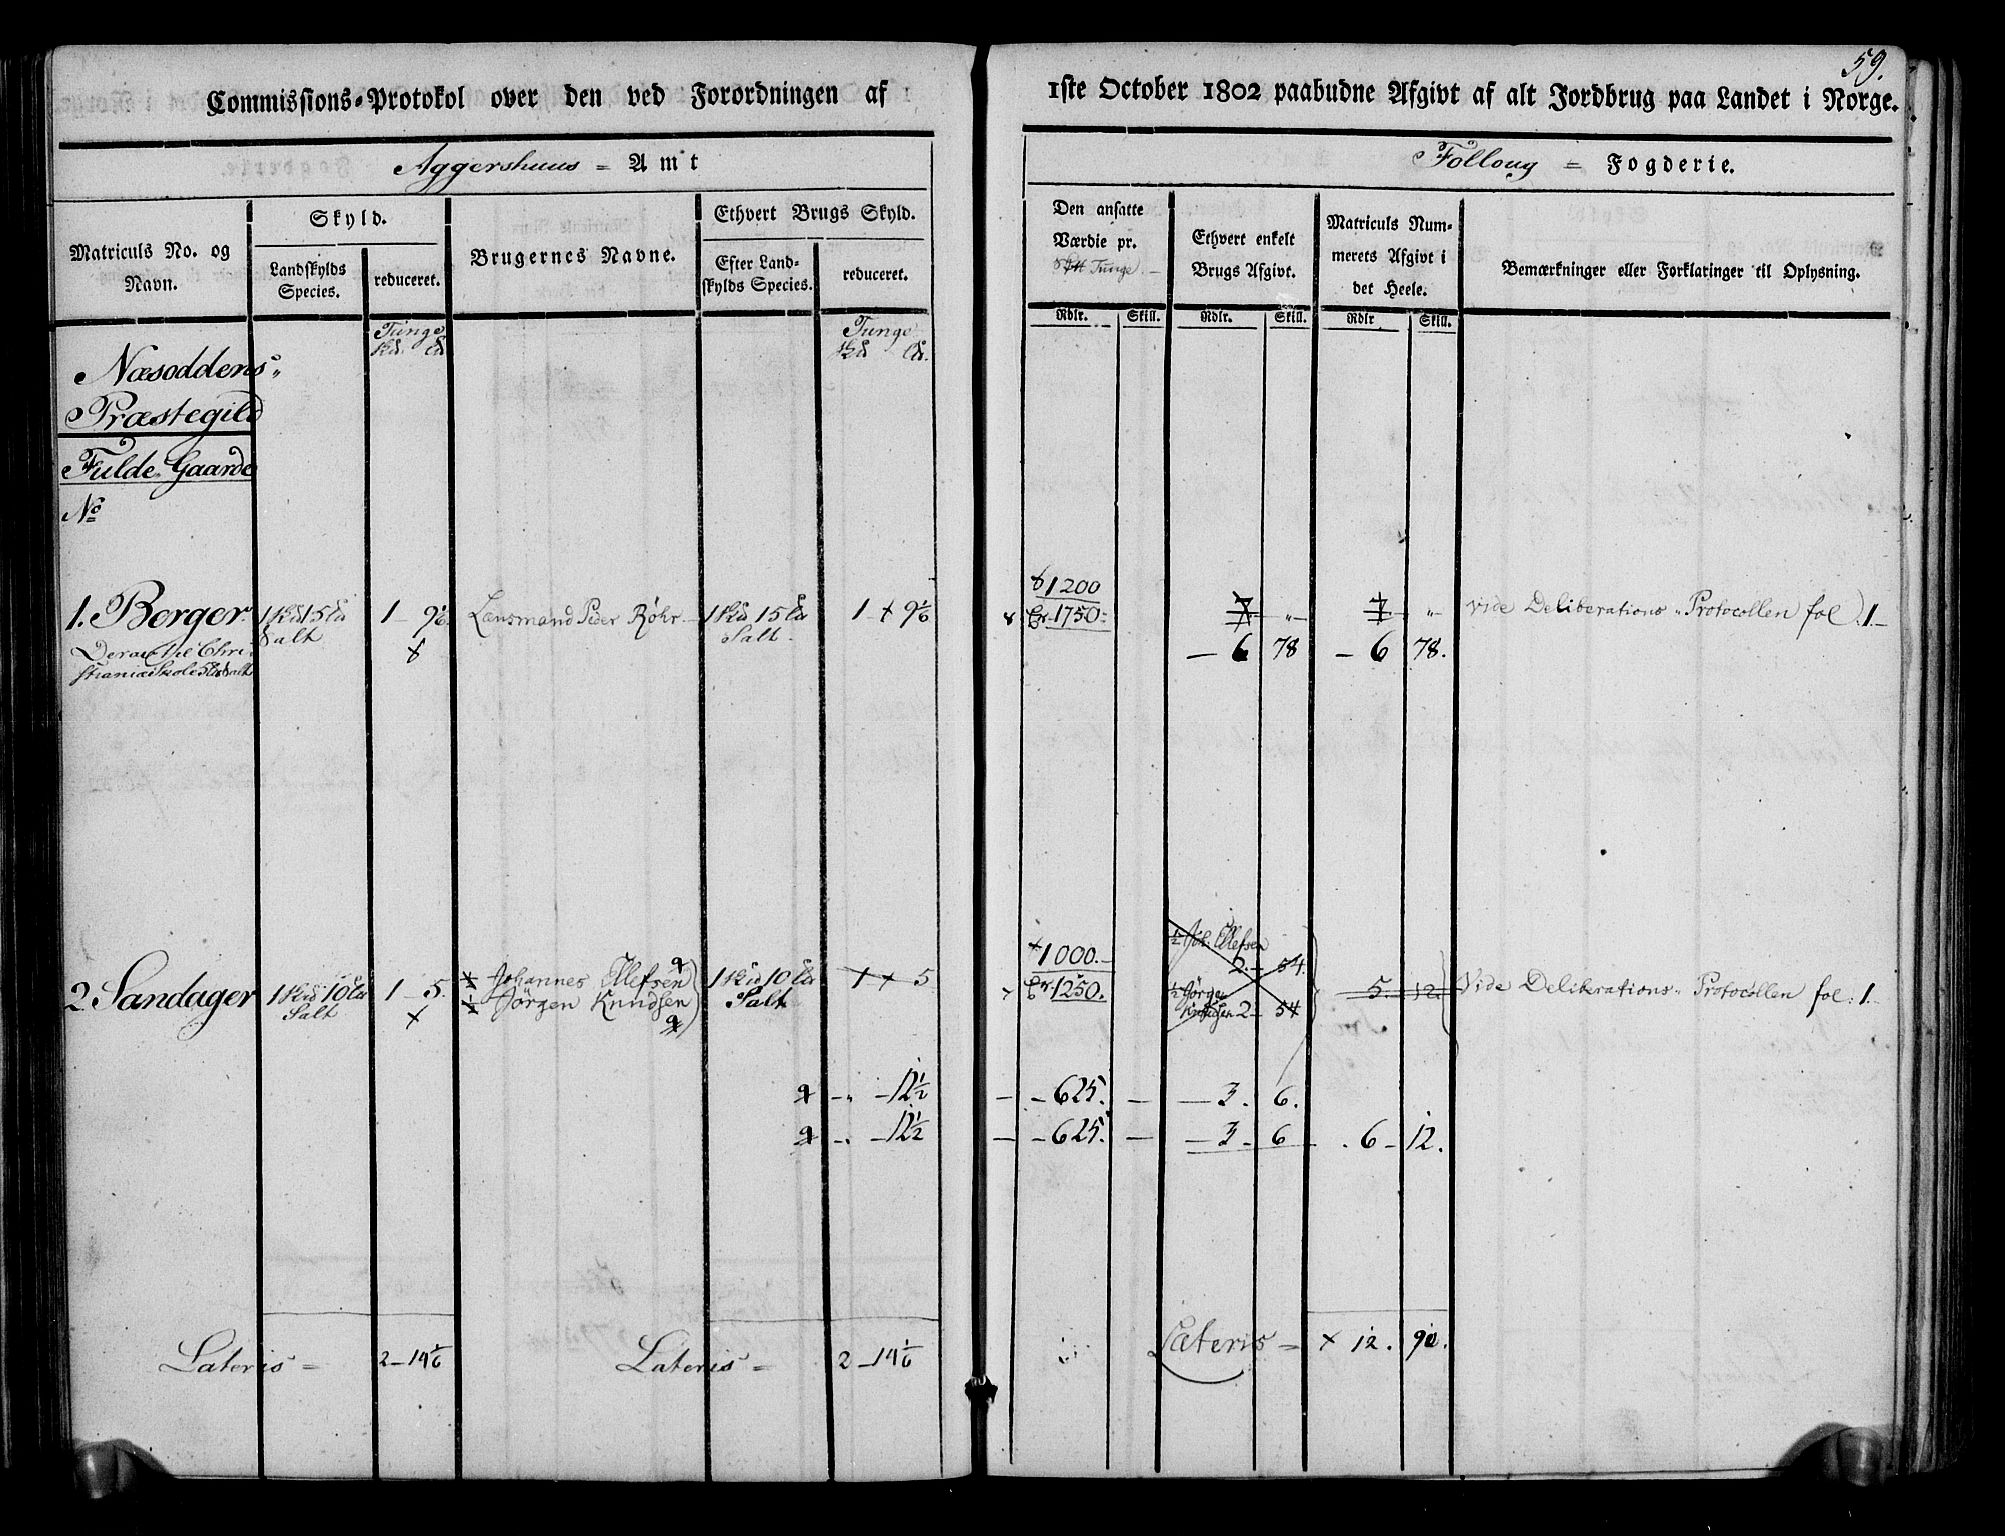 59.
Commissions-Protokol over den ved Forordningen af 1ste October 1802 paabudne Afgivt af alt Jordbrug paa Landet i Norge.
Aggershuus = Amt
Folloug = Fogderie.
Matriculs No. og Navn.
Skyld.
Landskylds Species.
reduceret.
Brugernes Navne.
Ethvert Brugs Skyld.
Efter Landskylds Species.
reduceret.
Den ansatte Værdie pr. Tunge.
Ethvert enkelt Brugs Afgivt.
Matriculs Nummerets Afgivt i det Heele.
Bemærkninger eller Forklaringer til Oplysning.
Rdlr. Skill. Rdlr. Skill. Rdlr Skill.
Tunge Tunge
Næsoddens
Præstegild
Fulde Gaarde
No
1200
1. Berger 1 15 1 - 9 1/6 Lensmand Peder Röhr 1 15 1 9 1/6 1750 7 „ 7 „ Vide Deliberations Protocollen fol. 1.
Salt Salt
Deraf til Christiania Skole 5 Salt
6 78 6 78.
1000.
½ Joh. Ellefsen
2. 54.
2. Sandager 1 10 1 - 5. Johannes Ellefsen 1 10 1 5 1250. 5. 12. Vide Deliberations Protocollen fol: 1.
Salt Jörgen Knudsen Salt
½ Jörgen Knudsen 2 54
„ 12½ 625. 3. 6.
„ 12½ 625. 3 6 6 12.
Lateris = 2 - 14 1/6 Lateris = 2 - 14 1/6 Lateris = 12. 90.